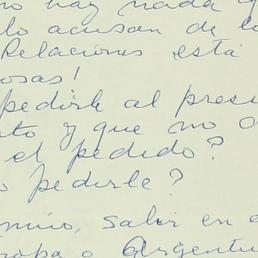 no hay nada q
lo acusan de lo
Relaciones está
osas!
pedirle al presi
to y que no
el pedido?
pedirle?
mío, salir en
ropa o Argentu